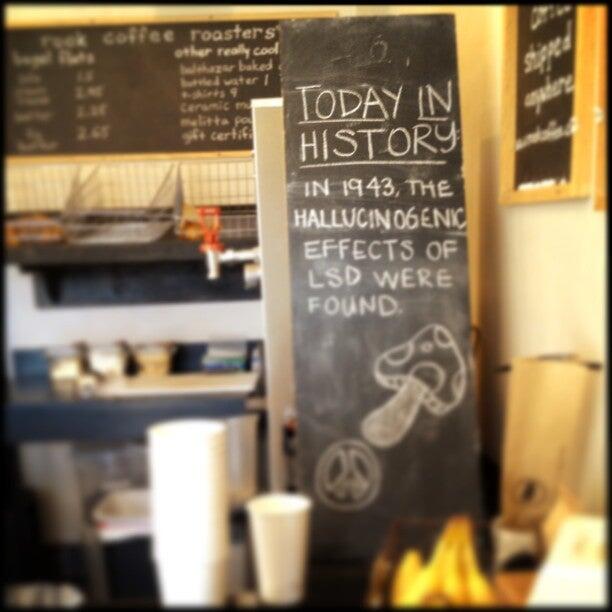 rook coffee roasters
other really cool
balthazar baked
bottled water 1
t-shirts
ceramic
melitta
gift
2.65
TODAY IN
HISTORY:
IN 1943, THE
HALLUCINOGENIC
EFFECTS OF
LSD WERE
FOUND.
coffee
shipped
anywhere